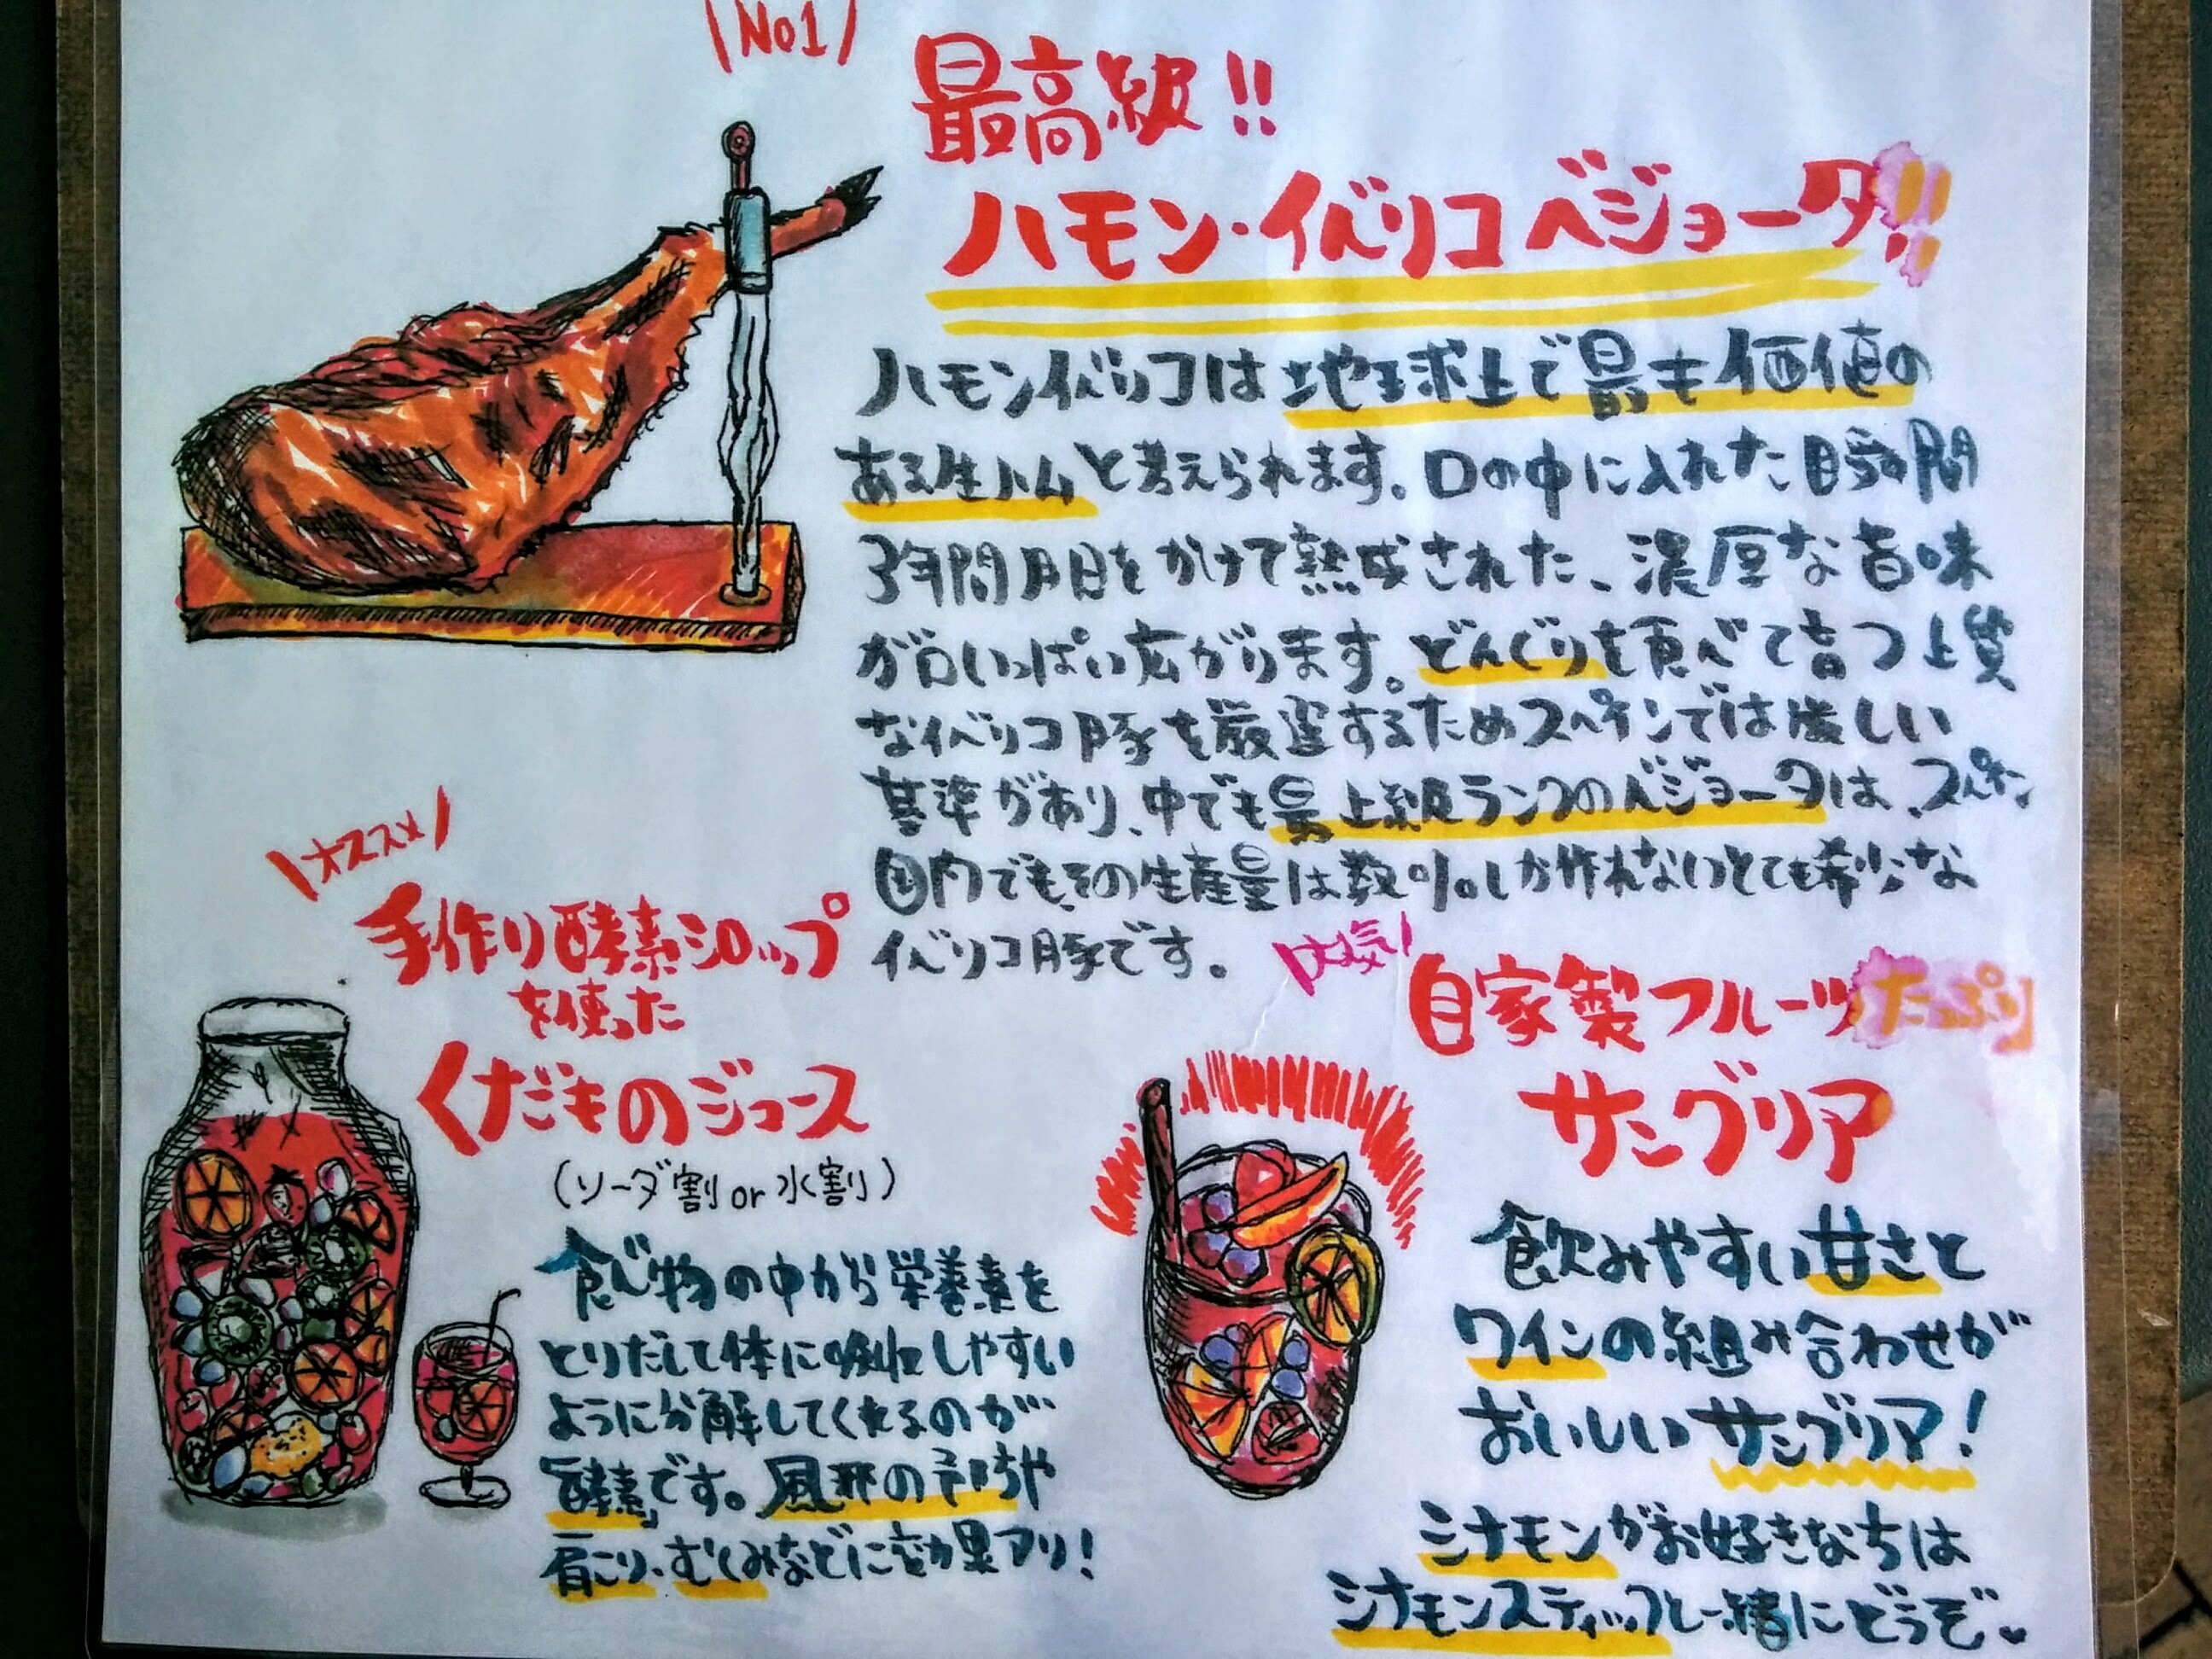 No1
最高級!!
ハモン・イベリコ ベジョータ!!
ハモンイベリコは地球上で最も価値の
ある生ハムと考えられます。口の中に入れた瞬間
3年間月日をかけて熟成された、濃厚な旨味
が口いっぱい広がります。どんぐりを食べて育つ上質
なイベリコ豚を厳選するためスペインでは厳しい
基準があり、中でも最上級ランクのベジョータは、スペイン
国内でもその生産量は数%しか作れないとても希少な
イベリコ豚です。
オススメ
手作り酵素シロップ
を使った
くだものジュース
(ソーダ割or水割)
食べ物の中から栄養素を
とりだして体に吸収しやすい
ように分解してくれるのが
「酵素」です。風邪の予防や
肩こり・むくみなどに効果アリ!
人気
自家製フルーツたっぷり
サングリア
飲みやすい甘さと
ワインの組み合わせが
おいしいサングリア!
シナモンがお好きな方は
シナモンスティックと一緒にどうぞ